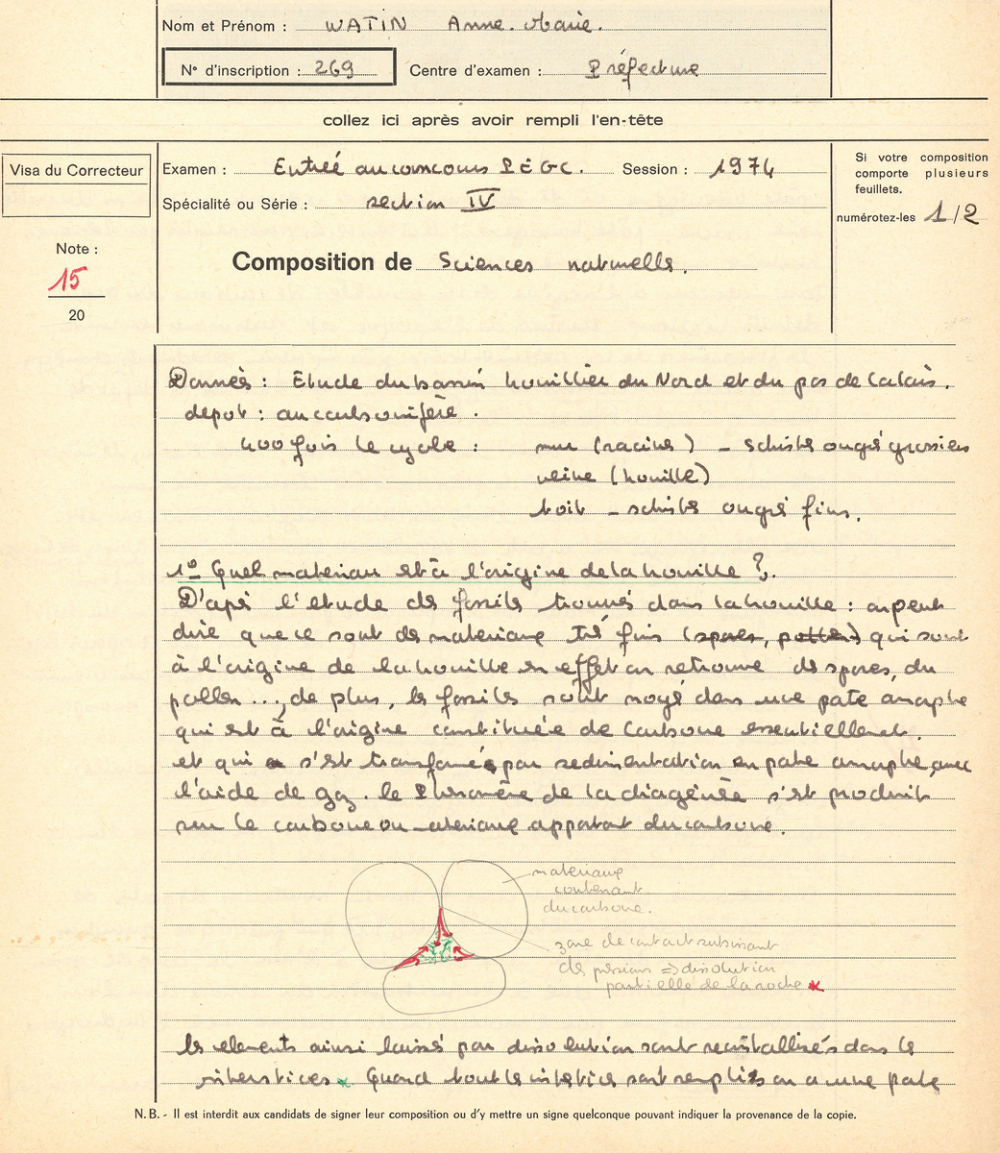 Nom et Prénom : WATIN Anne.Marie.
N° d'inscription : 269 Centre d'examen : Préfecture
collez ici après avoir rempli l'en-tête
Visa du Correcteur
Examen : Entrée au concours PEGC. Session : 1974
Spécialité ou Série : section IV
Si votre composition
comporte plusieurs
feuillets.
numérotez-les 1/2
Note :
15
20
Composition de Sciences naturelles.
Données : Etude du bassin houillier du Nord et du pas de Calais.
depot : au carbonifère.
400 fois le cycle : mur (racines) - schistes ou grés grossiers
veine (houille)
toit - schistes ou grés fins.
1° Quel materiau est à l'origine de la houille ?.
D'après l'etude des fossiles trouvés dans la houille : on peut
dire que ce sont des materiaux trés fins (spores, pollen) qui sont
à l'origine de la houille en effet on retrouve des spores, du
pollen ..., de plus, les fossiles sont noyé dans une pate amorphe
qui est à l'origine constituée de Carbone essentiellement.
et qui s'est transformée par sedimentation en pate amorphe avec
l'aide de gaz. le Phénomène de la diagénèse s'est produit
sur le carbone ou materiaux apportant du carbone.
materiaux
contenant
du carbone.
zone de contact subissant
des pressions => dissolution
partielle de la roche *
les elements ainsi laissés par dissolution sont recristallisés dans les
interstices * Quand tout les interstices sont remplis on a une pate
N.B. - Il est interdit aux candidats de signer leur composition ou d'y mettre un signe quelconque pouvant indiquer la provenance de la copie.